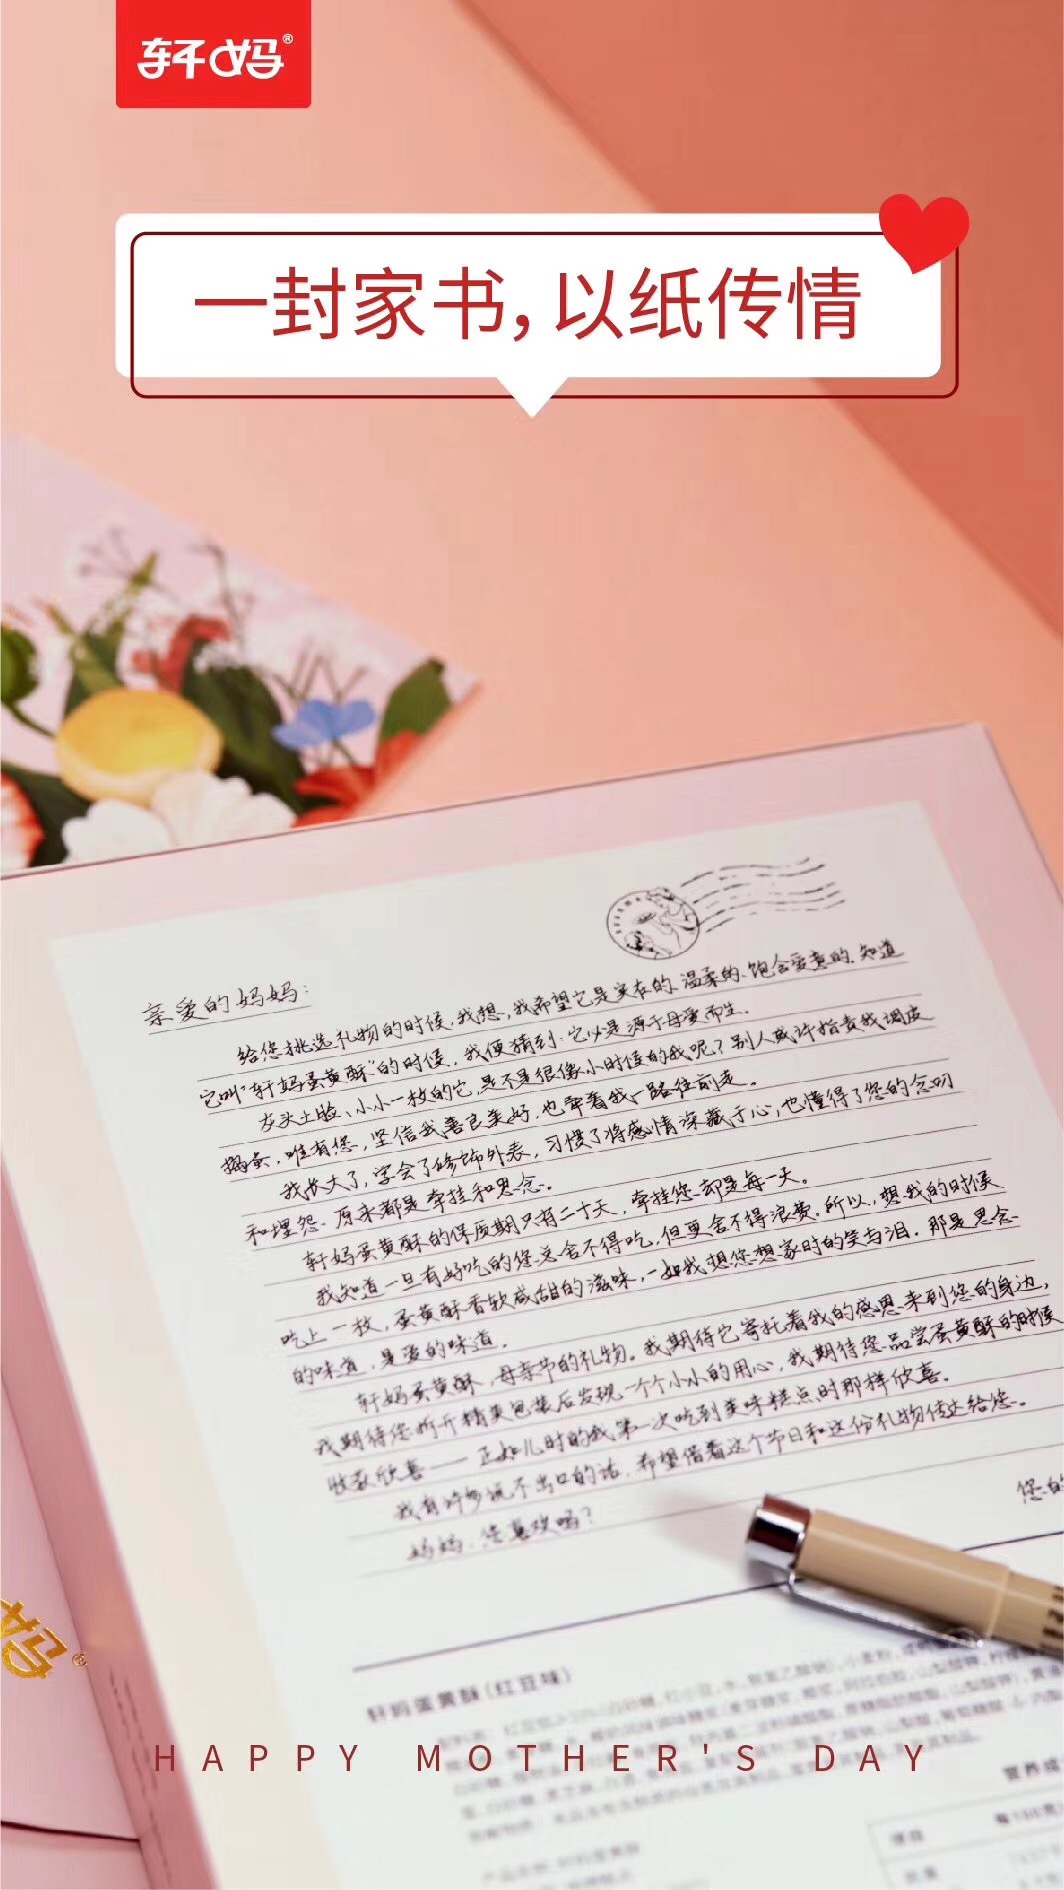 轩妈®
一封家书,以纸传情
亲爱的妈妈:
给您挑选礼物的时候,我想,我希望它是实在的、温柔的、饱含爱意的。知道
它叫“轩妈蛋黄酥”的时候,我便猜到:它必是源于母爱而生。
灰头土脸、小小一枚的它,是不是很像小时候的我呢?别人或许指责我调皮
捣蛋,唯有您,坚信我善良美好,也牵着我一路往前走。
我长大了,学会了修饰外表,习惯了将感情深藏于心,也懂得了您的念叨
和埋怨。原来都是牵挂和思念。
轩妈蛋黄酥的保质期只有二十天,牵挂您却是每一天。
我知道一旦有好吃的您总舍不得吃,但更舍不得浪费。所以,想我的时候
吃上一枚,蛋黄酥香软咸甜的滋味,一如我想您想家时的笑与泪。那是思念
的味道,是爱的味道。
轩妈蛋黄酥,母亲节的礼物。我期待它寄托着我的感恩来到您的身边,
我期待您拆开精美包装后发现一个个小小的用心,我期待您品尝蛋黄酥的时候
收获欣喜——正如儿时的我第一次吃到美味糕点时那样欣喜。
我有许多说不出口的话,希望借着这个节日和这份礼物传达给您。
妈妈,您喜欢吗?
您的
妈®
轩妈蛋黄酥(红豆味)
HAPPY MOTHER'S DAY
营养成
项目